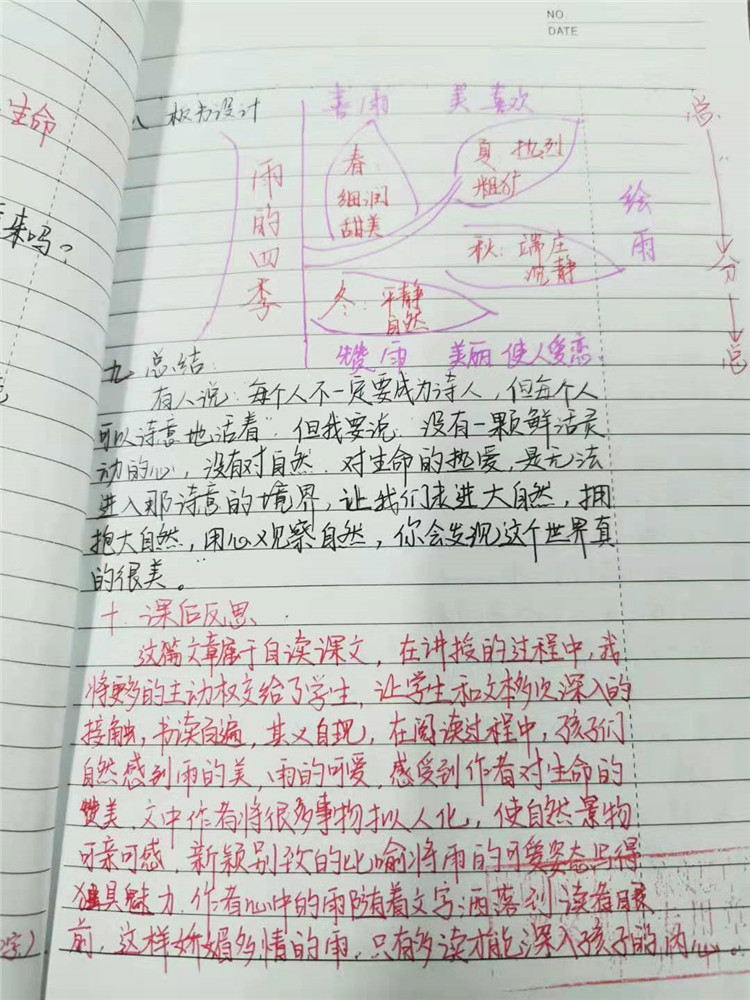 NO.
DATE
生命
来吗？
八 板书设计
喜雨 美 喜欢
雨的四季
春：
细润
甜美
夏 热烈
粗犷
秋：端庄
沉静
冬：平静
自然
绘雨
总
分
总
赞雨 美丽 使人爱恋
九 总结：
有人说：每个人不一定要成为诗人，但每个人
可以诗意地活着"但我要说：没有一颗鲜活灵
动的心，没有对自然、对生命的热爱，是无法
进入那诗意的境界，让我们走进大自然，拥
抱大自然，用心观察自然，你会发现这个世界真
的很美。
十、课后反思：
这篇文章属于自读课文，在讲授的过程中，我
将更多的主动权交给了学生，让学生和文本多次深入的
接触，书读百遍，其义自现，在阅读过程中，孩子们
自然感到雨的美，雨的可爱，感受到作者对生命的
赞美，文中作者将很多事物拟人化，使自然景物
可亲可感，新颖别致的比喻将雨的可爱姿态写得
独具魅力，作者心中的雨随着文字洒落到读者眼
前，这样娇媚多情的雨，只有多读才能深入孩子的内心。
字）